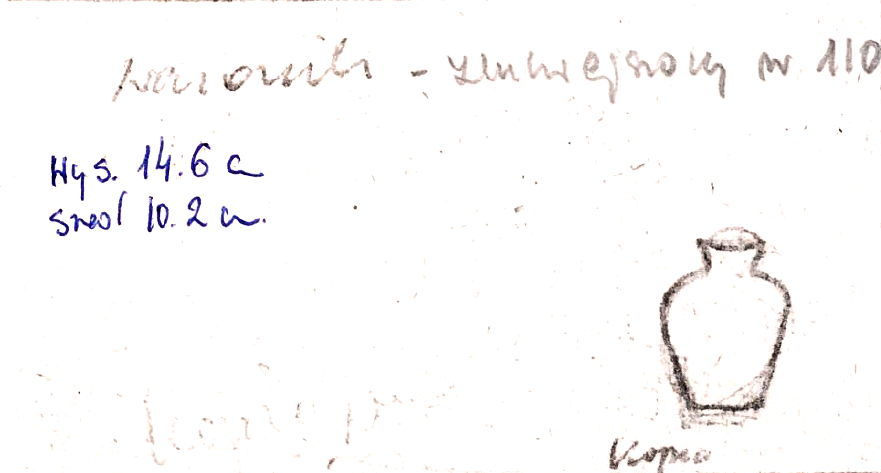 wazonik - zmniejszony nr 110
Wys. 14.6 c
śred 10.2 c.
Kopia